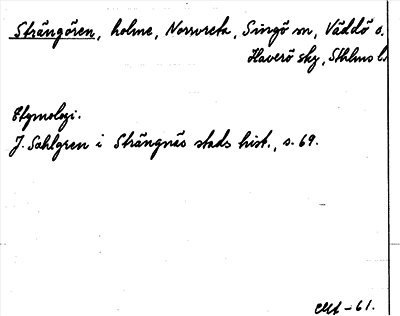 Strängören, holme, Norrvreta, Singö sn, Väddö o.
Häverö skg, Sthlms l.
Etymologi.
J. Sahlgren i Strängnäs stads hist., s. 69.
-61.